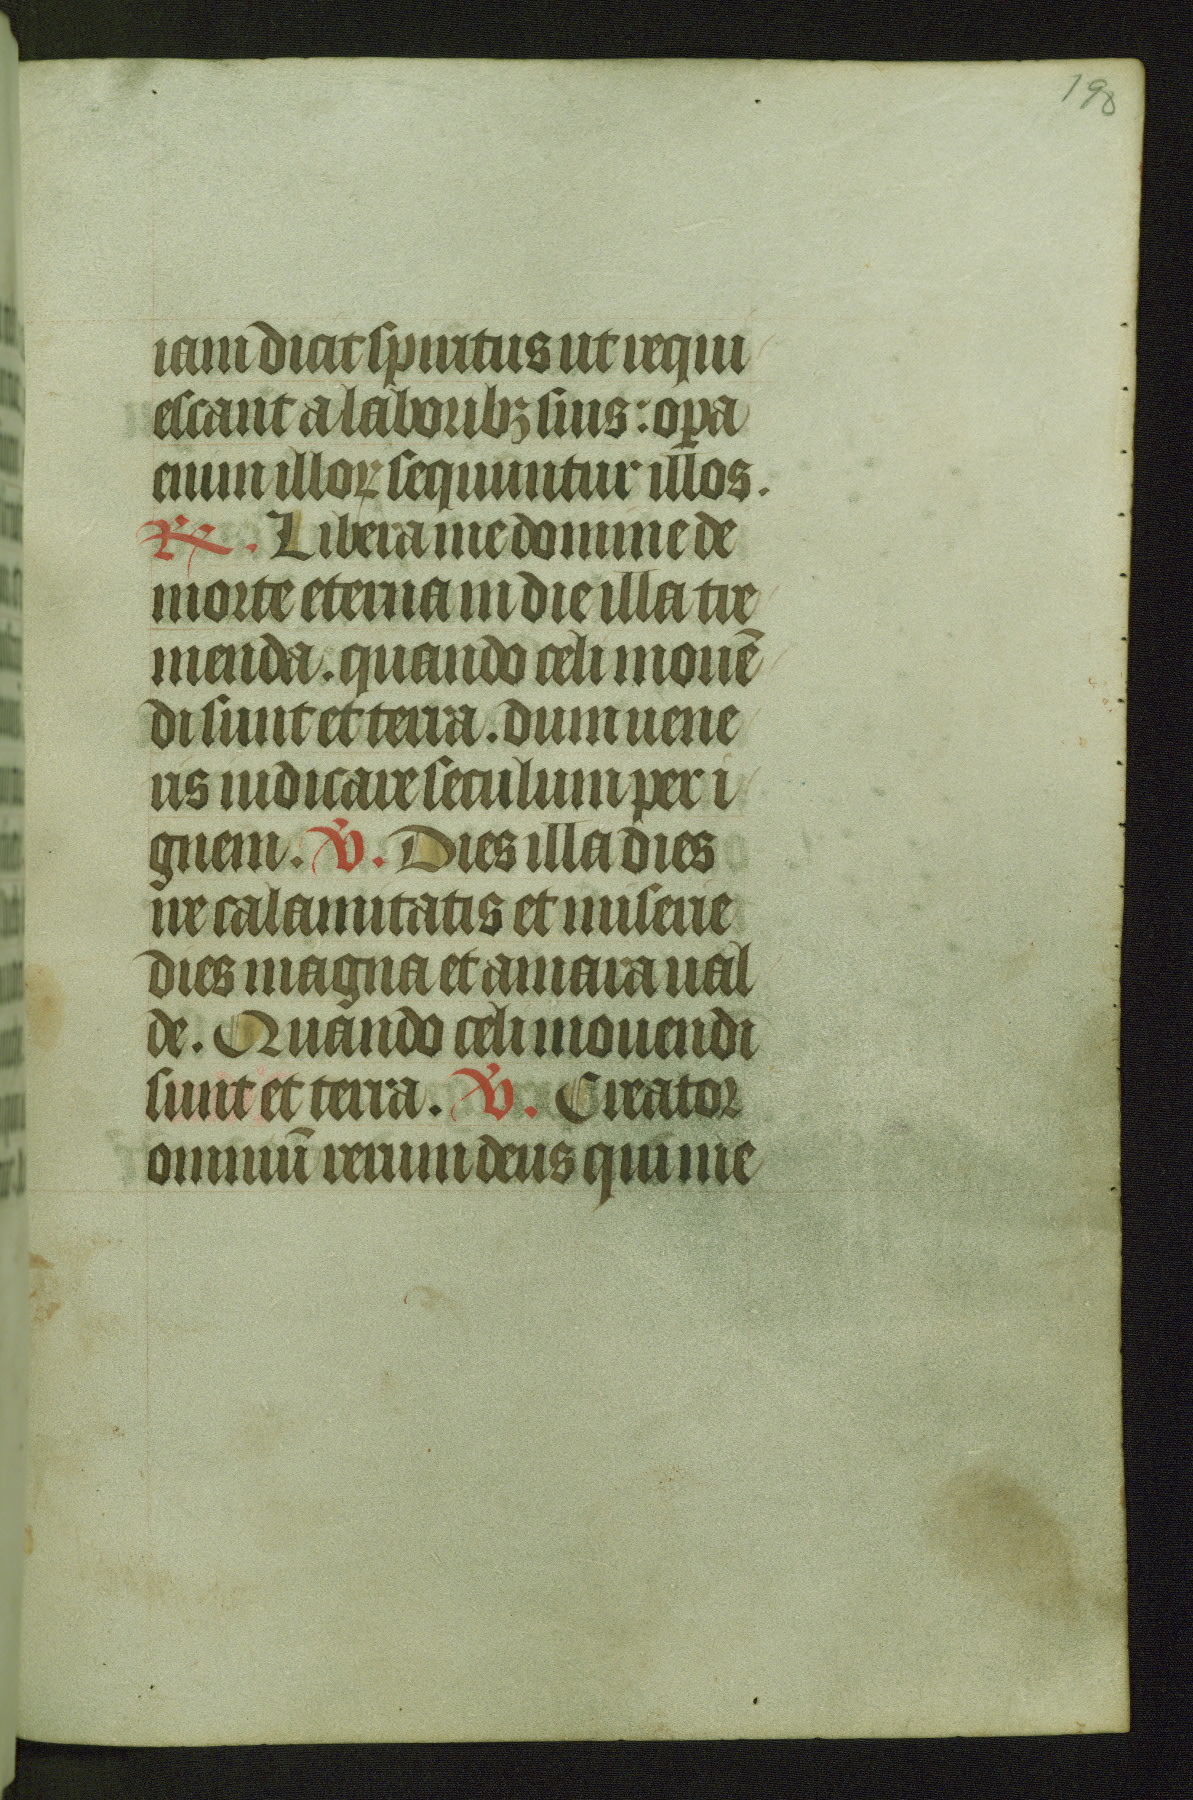 198
iam dicit spiritus ut requi
escant a laboribꝫ suis: oꝑa
enim illoꝝ sequuntur illos.
℟. Libera me domine de
morte eterna in die illa tre
menda. quando celi mouē
di sunt et terra. dum uene
ris iudicare seculum per i
gnem. ℣. Dies illa dies
ire calamitatis et miserie
dies magna et amara ual
de. Quando celi mouendi
sunt et terra. ℣. Creator
omniū rerum deus qui me